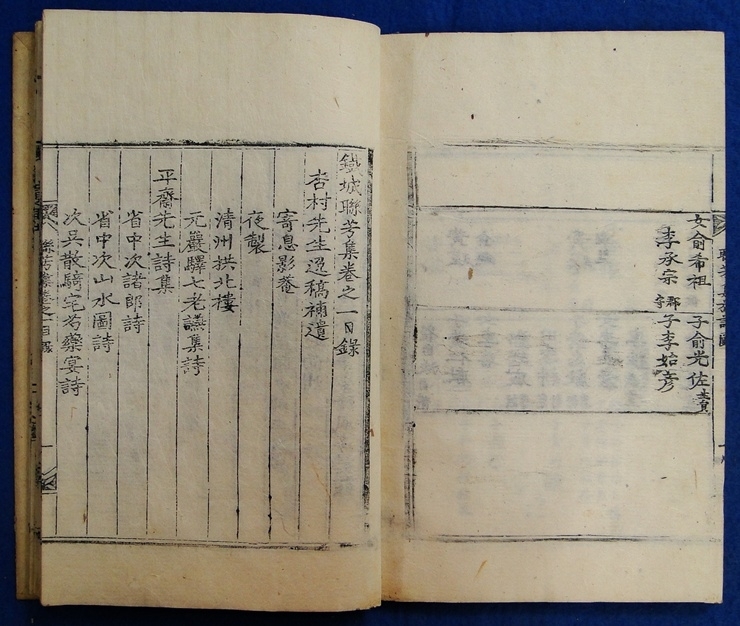 女俞希祖 子俞光佐
李承宗 郡守 子李始彦
鐵城聯芳集卷之一目錄
杏村先生逸稿補遺
寄息影菴
夜製
清州拱北樓
元巖驛七老讌集詩
平齋先生詩集
省中次諸郎詩
省中次山水圖詩
次吳散騎宅芍藥宴詩
聯芳集卷之一目錄